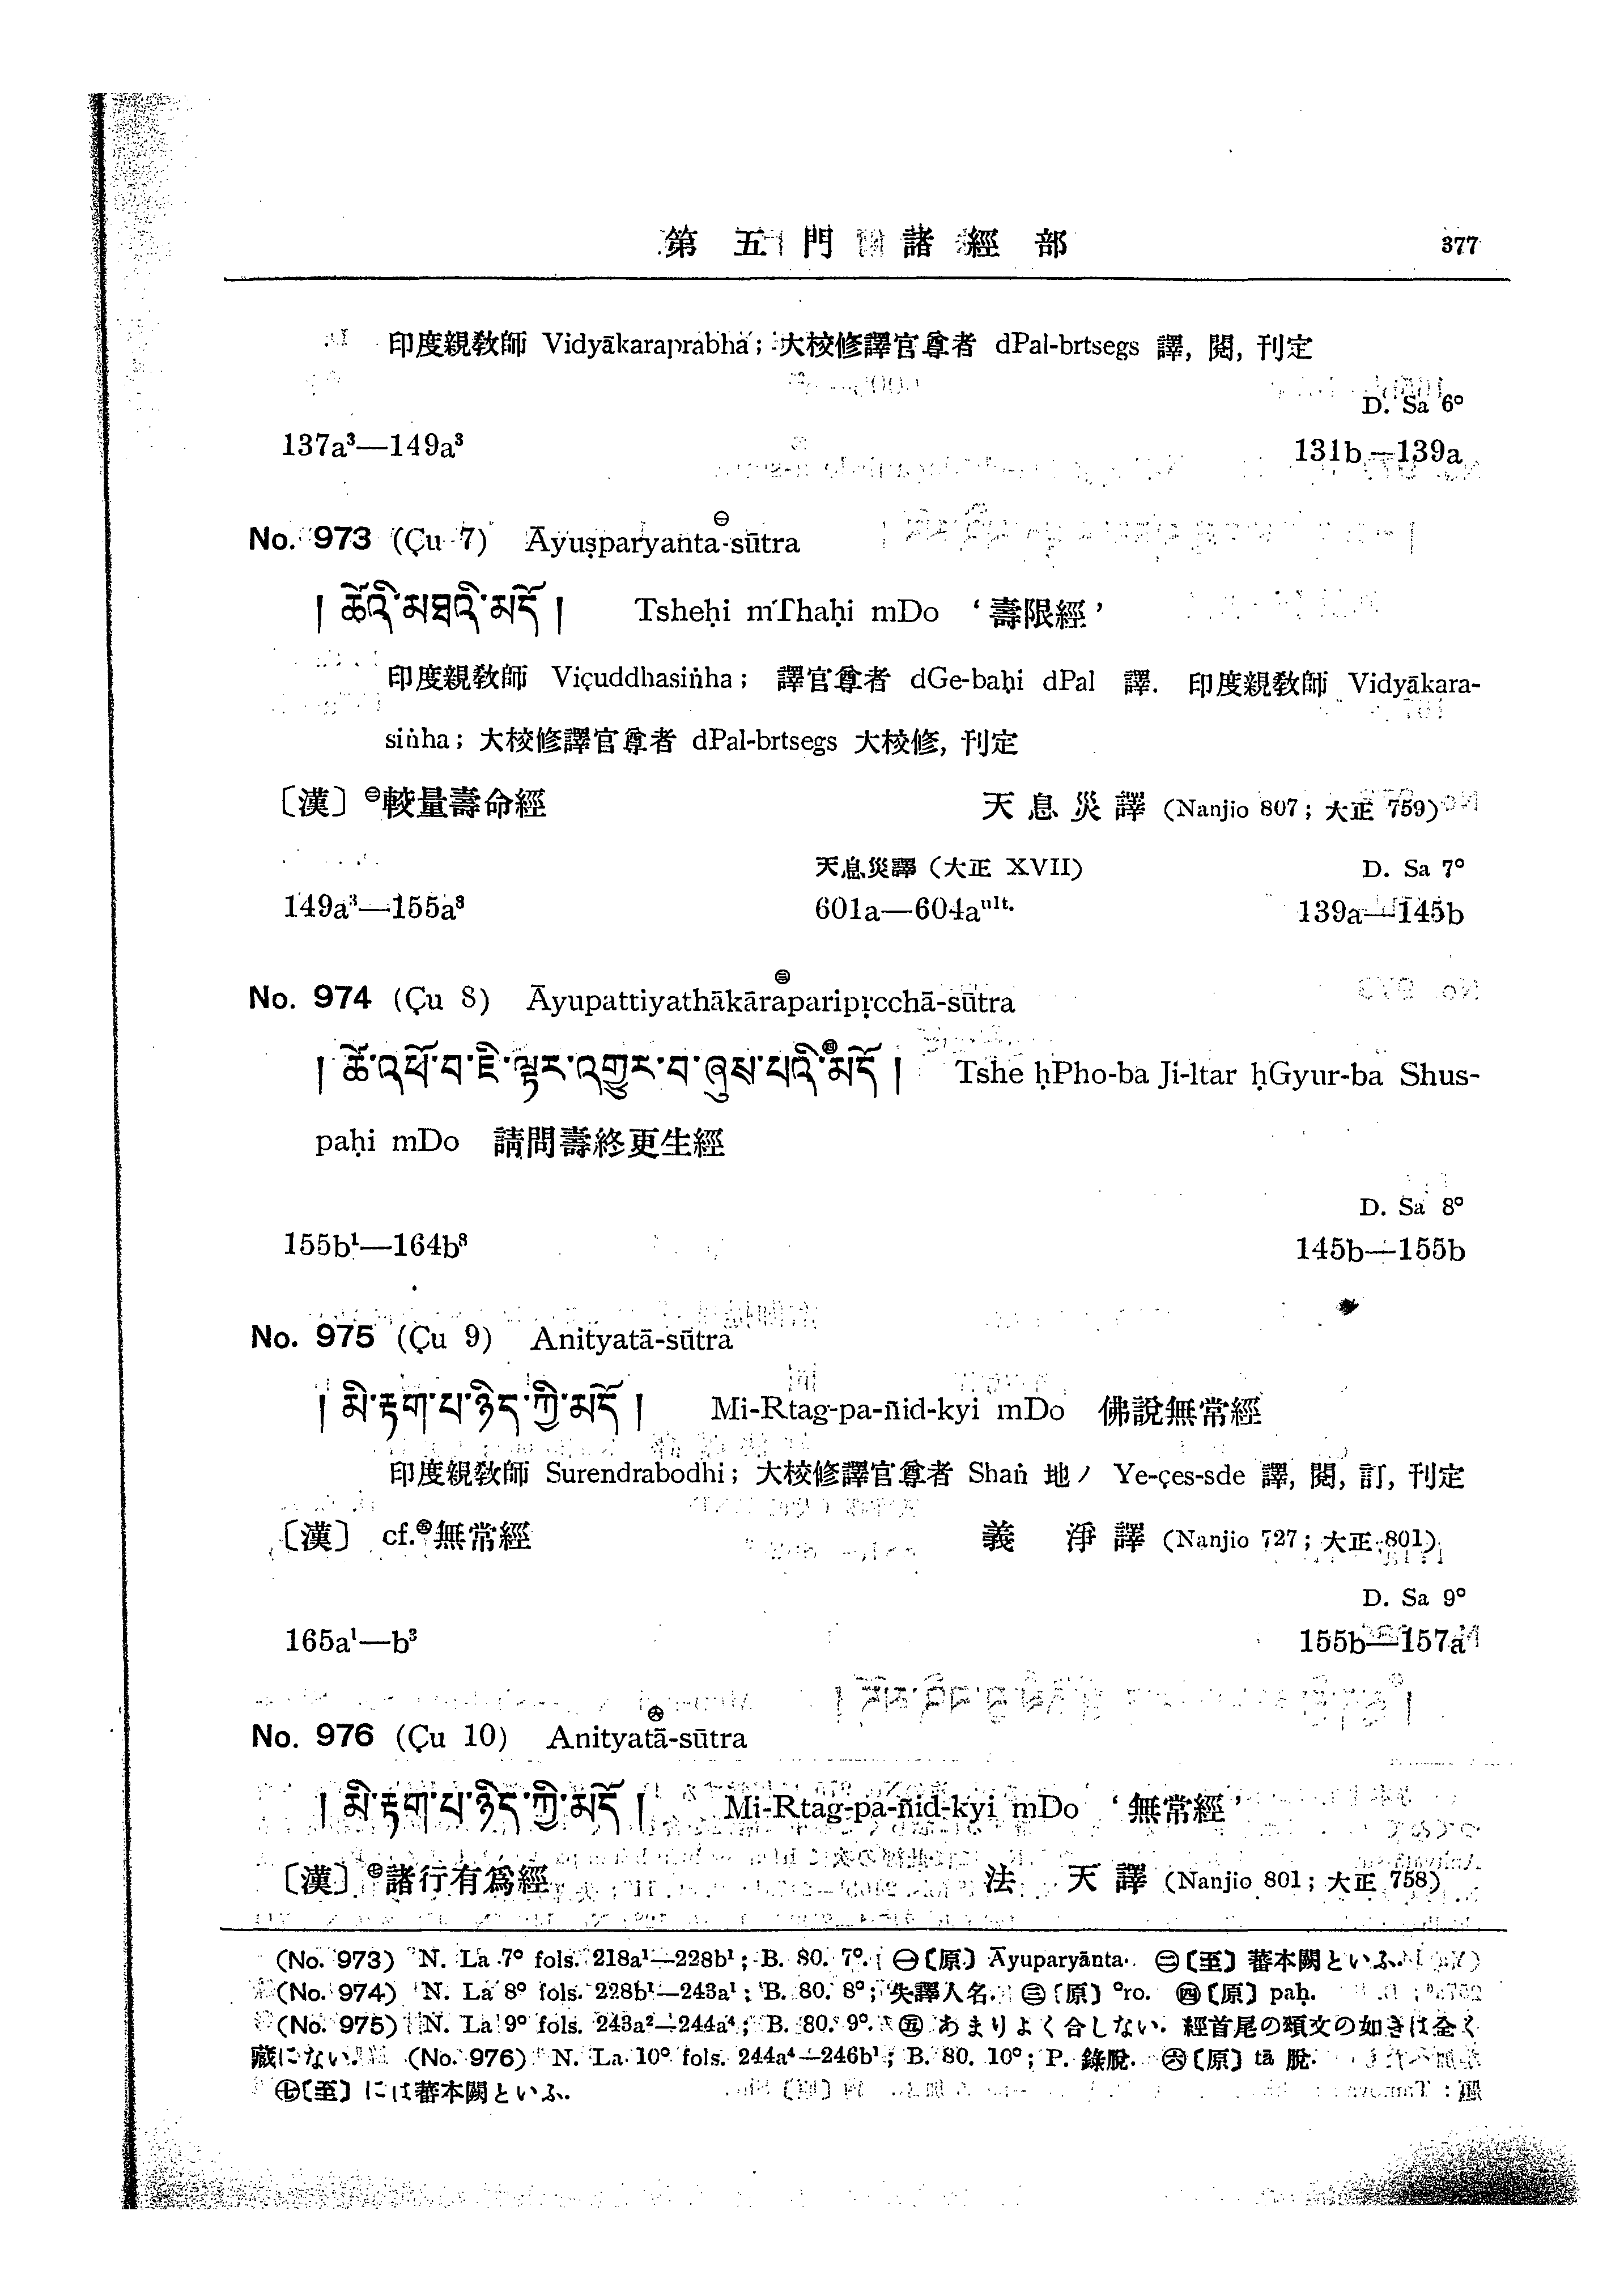 第五門 諸經部 377
印度親敎師 Vidyākaraprabha; 大校修譯官尊者 dPal-brtsegs 譯, 閱, 刊定
D. Sa 6º
137a³—149a³ 131b—139a
No. 973 (Çu 7) Āyuṣparyanta-sūtra ㊀
། ཚེའི་མཐའི་མདོ། Tsheḥi mThaḥi mDo ‘壽限經’
印度親敎師 Viçuddhasiṅha; 譯官尊者 dGe-baḥi dPal 譯. 印度親敎師 Vidyākara-
siṅha; 大校修譯官尊者 dPal-brtsegs 大校修, 刊定
〔漢〕㊁較量壽命經 天息災譯 (Nanjio 807; 大正 759)
天息災譯 (大正 XVII) D. Sa 7º
149a³—155a⁸ 601a—604aᵘˡᵗ· 139a—145b
No. 974 (Çu 8) Āyupattiyathākāraparipṛcchā-sūtra ㊂
། ཚེ་འཕོ་བ་ཇི་ལྟར་འགྱུར་བ་ཞུས་པའི་མདོ། ㊃ Tshe ḥPho-ba Ji-ltar ḥGyur-ba Shus-
paḥi mDo 請問壽終更生經
D. Sa 8º
155b¹—164b⁸ 145b—155b
No. 975 (Çu 9) Anityatā-sūtra
། མི་རྟག་པ་ཉིད་ཀྱི་མདོ། Mi-Rtag-pa-ñid-kyi mDo 佛說無常經
印度親敎師 Surendrabodhi; 大校修譯官尊者 Shaṅ 地ノ Ye-çes-sde 譯, 閱, 訂, 刊定
〔漢〕 cf.㊄無常經 義淨譯 (Nanjio 727; 大正 801)
D. Sa 9º
165a¹—b³ 155b—157a
No. 976 (Çu 10) Anityatā-sūtra ㊅
། མི་རྟག་པ་ཉིད་ཀྱི་མདོ། Mi-Rtag-pa-ñid-kyi mDo ‘無常經’
〔漢〕㊆諸行有爲經 法天譯 (Nanjio 801; 大正 758)
(No. 973) N. La 7º fols. 218a¹—228b¹; B. 80. 7º. ㊀〔原〕 Āyuparyānta. ㊁〔至〕 蕃本闕といふ.
(No. 974) N. La 8º fols. 228b¹—243a¹; B. 80. 8º; 失譯人名. ㊂〔原〕 ºro. ㊃〔原〕 paḥ.
(No. 975) N. La 9º fols. 243a²—244a⁴; B. 80. 9º. ㊄ あまりよく合しない. 經首尾の頌文の如きは全く
藏にない. (No. 976) N. La 10º fols. 244a⁴—246b¹; B. 80. 10º; P. 錄脫. ㊅〔原〕 tā 脫.
㊆〔至〕には蕃本闕といふ.